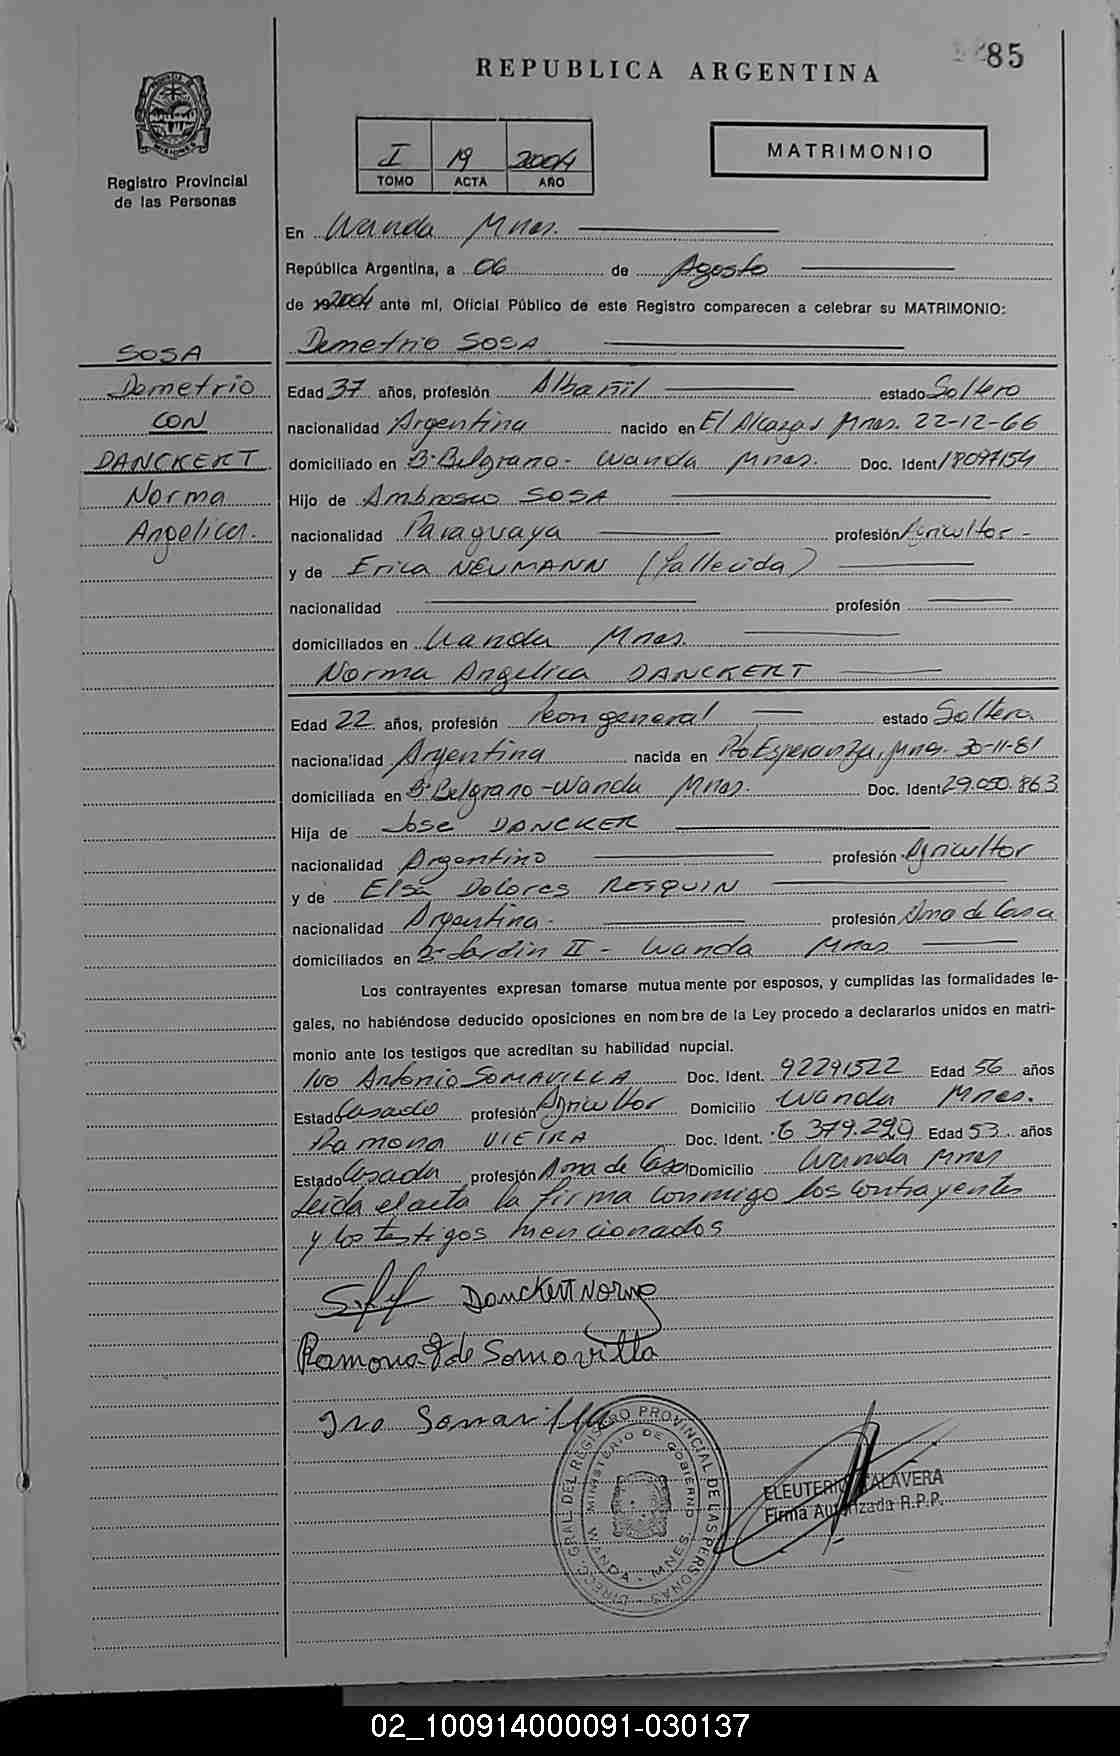 85
REPUBLICA ARGENTINA
I 19 2004
TOMO ACTA AÑO
MATRIMONIO
Registro Provincial
de las Personas
En Wanda Mnes.
República Argentina, a 06 de Agosto
de 2004 ante mí, Oficial Público de este Registro comparecen a celebrar su MATRIMONIO:
SOSA
Demetrio
CON
DANCKERT
Norma
Angelica.
Demetrio SOSA
Edad 37 años, profesión Albañil estado Soltero
nacionalidad Argentina nacido en El Alcazar Mnes. 22-12-66
domiciliado en B. Belgrano - Wanda Mnes. Doc. Ident 18097154
Hijo de Ambrosio SOSA
nacionalidad Paraguaya profesión Agricultor -
y de Erica NEUMANN (fallecida)
nacionalidad profesión
domiciliados en Wanda Mnes.
Norma Angelica DANCKERT
Edad 22 años, profesión Peon general estado Soltera
nacionalidad Argentina nacida en Pto Esperanza, Mnes. 30-11-81
domiciliada en B. Belgrano - Wanda Mnes. Doc. Ident 29.050.863
Hija de Jose DANCKER
nacionalidad Argentino profesión Agricultor
y de Elsa Dolores RESQUIN
nacionalidad Argentina. profesión Ama de Casa
domiciliados en B. Jardin II - Wanda Mnes.
Los contrayentes expresan tomarse mutuamente por esposos, y cumplidas las formalidades le-
gales, no habiéndose deducido oposiciones en nombre de la Ley procedo a declararlos unidos en matri-
monio ante los testigos que acreditan su habilidad nupcial.
Ivo Antonio SOMAVILLA Doc. Ident. 92291522 Edad 56 años
Estado Casado profesión Agricultor Domicilio Wanda Mnes.
Ramona VIEIRA Doc. Ident. 6 379.290 Edad 53 años
Estado Casada profesión Ama de Casa Domicilio Wanda Mnes
Leida el acta la firma conmigo los contrayentes
y los testigos mencionados
Danckert Norma
Ramona de Somavilla
Ivo Somavilla
DIRECC. GRAL. DEL REGISTRO PROVINCIAL DE LAS PERSONAS
MINISTERIO DE GOBIERNO
WANDA - MNES
ELEUTERIO TALAVERA
Firma Autorizada R.P.P.
02_100914000091-030137